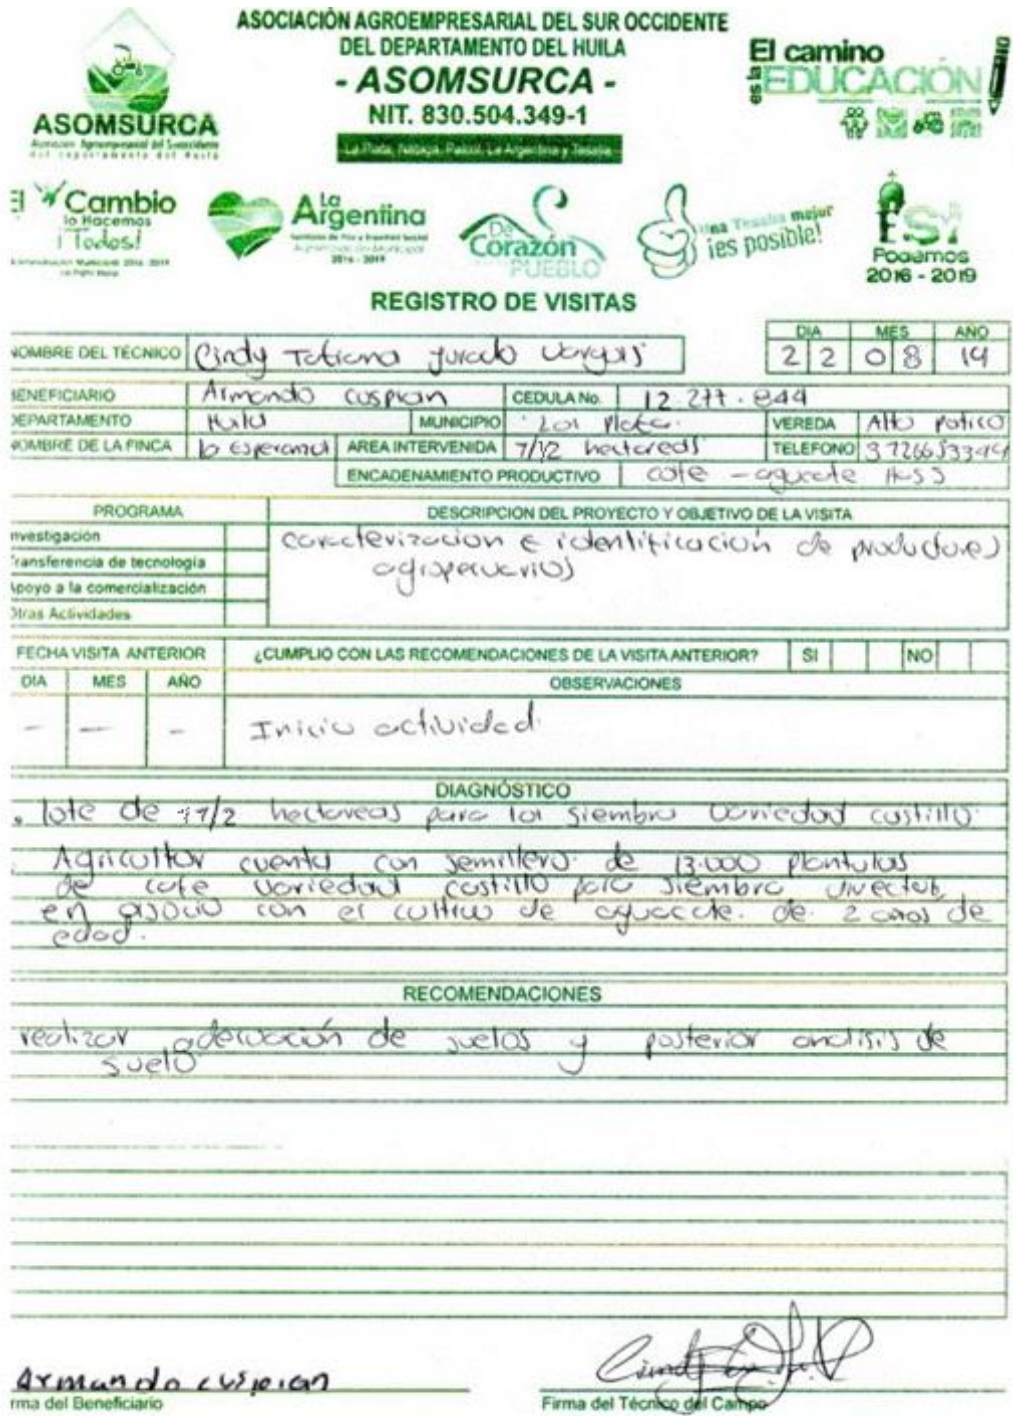 ASOCIACIÓN AGROEMPRESARIAL DEL SUR OCCIDENTE
DEL DEPARTAMENTO DEL HUILA
- ASOMSURCA -
NIT. 830.504.349-1
La Plata, Nátaga, Paicol, La Argentina y Tesalia
ASOMSURCA
del departamento del Huila
El camino
es la EDUCACIÓN
El Cambio
lo Hacemos
¡Todos!
La Argentina
2016 - 2019
De Corazón
PUEBLO
una Tesalia mejor
¡es posible!
ESI
Podemos
2016 - 2019
REGISTRO DE VISITAS
NOMBRE DEL TÉCNICO Cindy Tatiana Jurado Vargas
DIA MES AÑO
22 08 19
BENEFICIARIO Armando cuspian CEDULA No. 12.277.844
DEPARTAMENTO Huila MUNICIPIO La Plata VEREDA Alto patico
NOMBRE DE LA FINCA la Esperanza AREA INTERVENIDA 7/12 hectareas TELEFONO
ENCADENAMIENTO PRODUCTIVO cafe - aguacate Hass
PROGRAMA DESCRIPCION DEL PROYECTO Y OBJETIVO DE LA VISITA
Investigación
Transferencia de tecnología
Apoyo a la comercialización
Otras Actividades
caracterizacion e identificación de productores
agropecuarios
FECHA VISITA ANTERIOR ¿CUMPLIO CON LAS RECOMENDACIONES DE LA VISITA ANTERIOR? SI NO
DIA MES AÑO OBSERVACIONES
- - - Inicio actividad.
DIAGNÓSTICO
. lote de 1/2 hectareas para la siembra variedad castillo.
. Agricultor cuenta con semillero de 13.000 plantulas
de cafe variedad castillo para siembra directa,
en asocio con el cultivo de aguacate. de 2 años de
edad.
RECOMENDACIONES
realizar adecuación de suelos y posterior analisis de
suelo
Armando cuspian
Firma del Beneficiario
Firma del Técnico del Campo